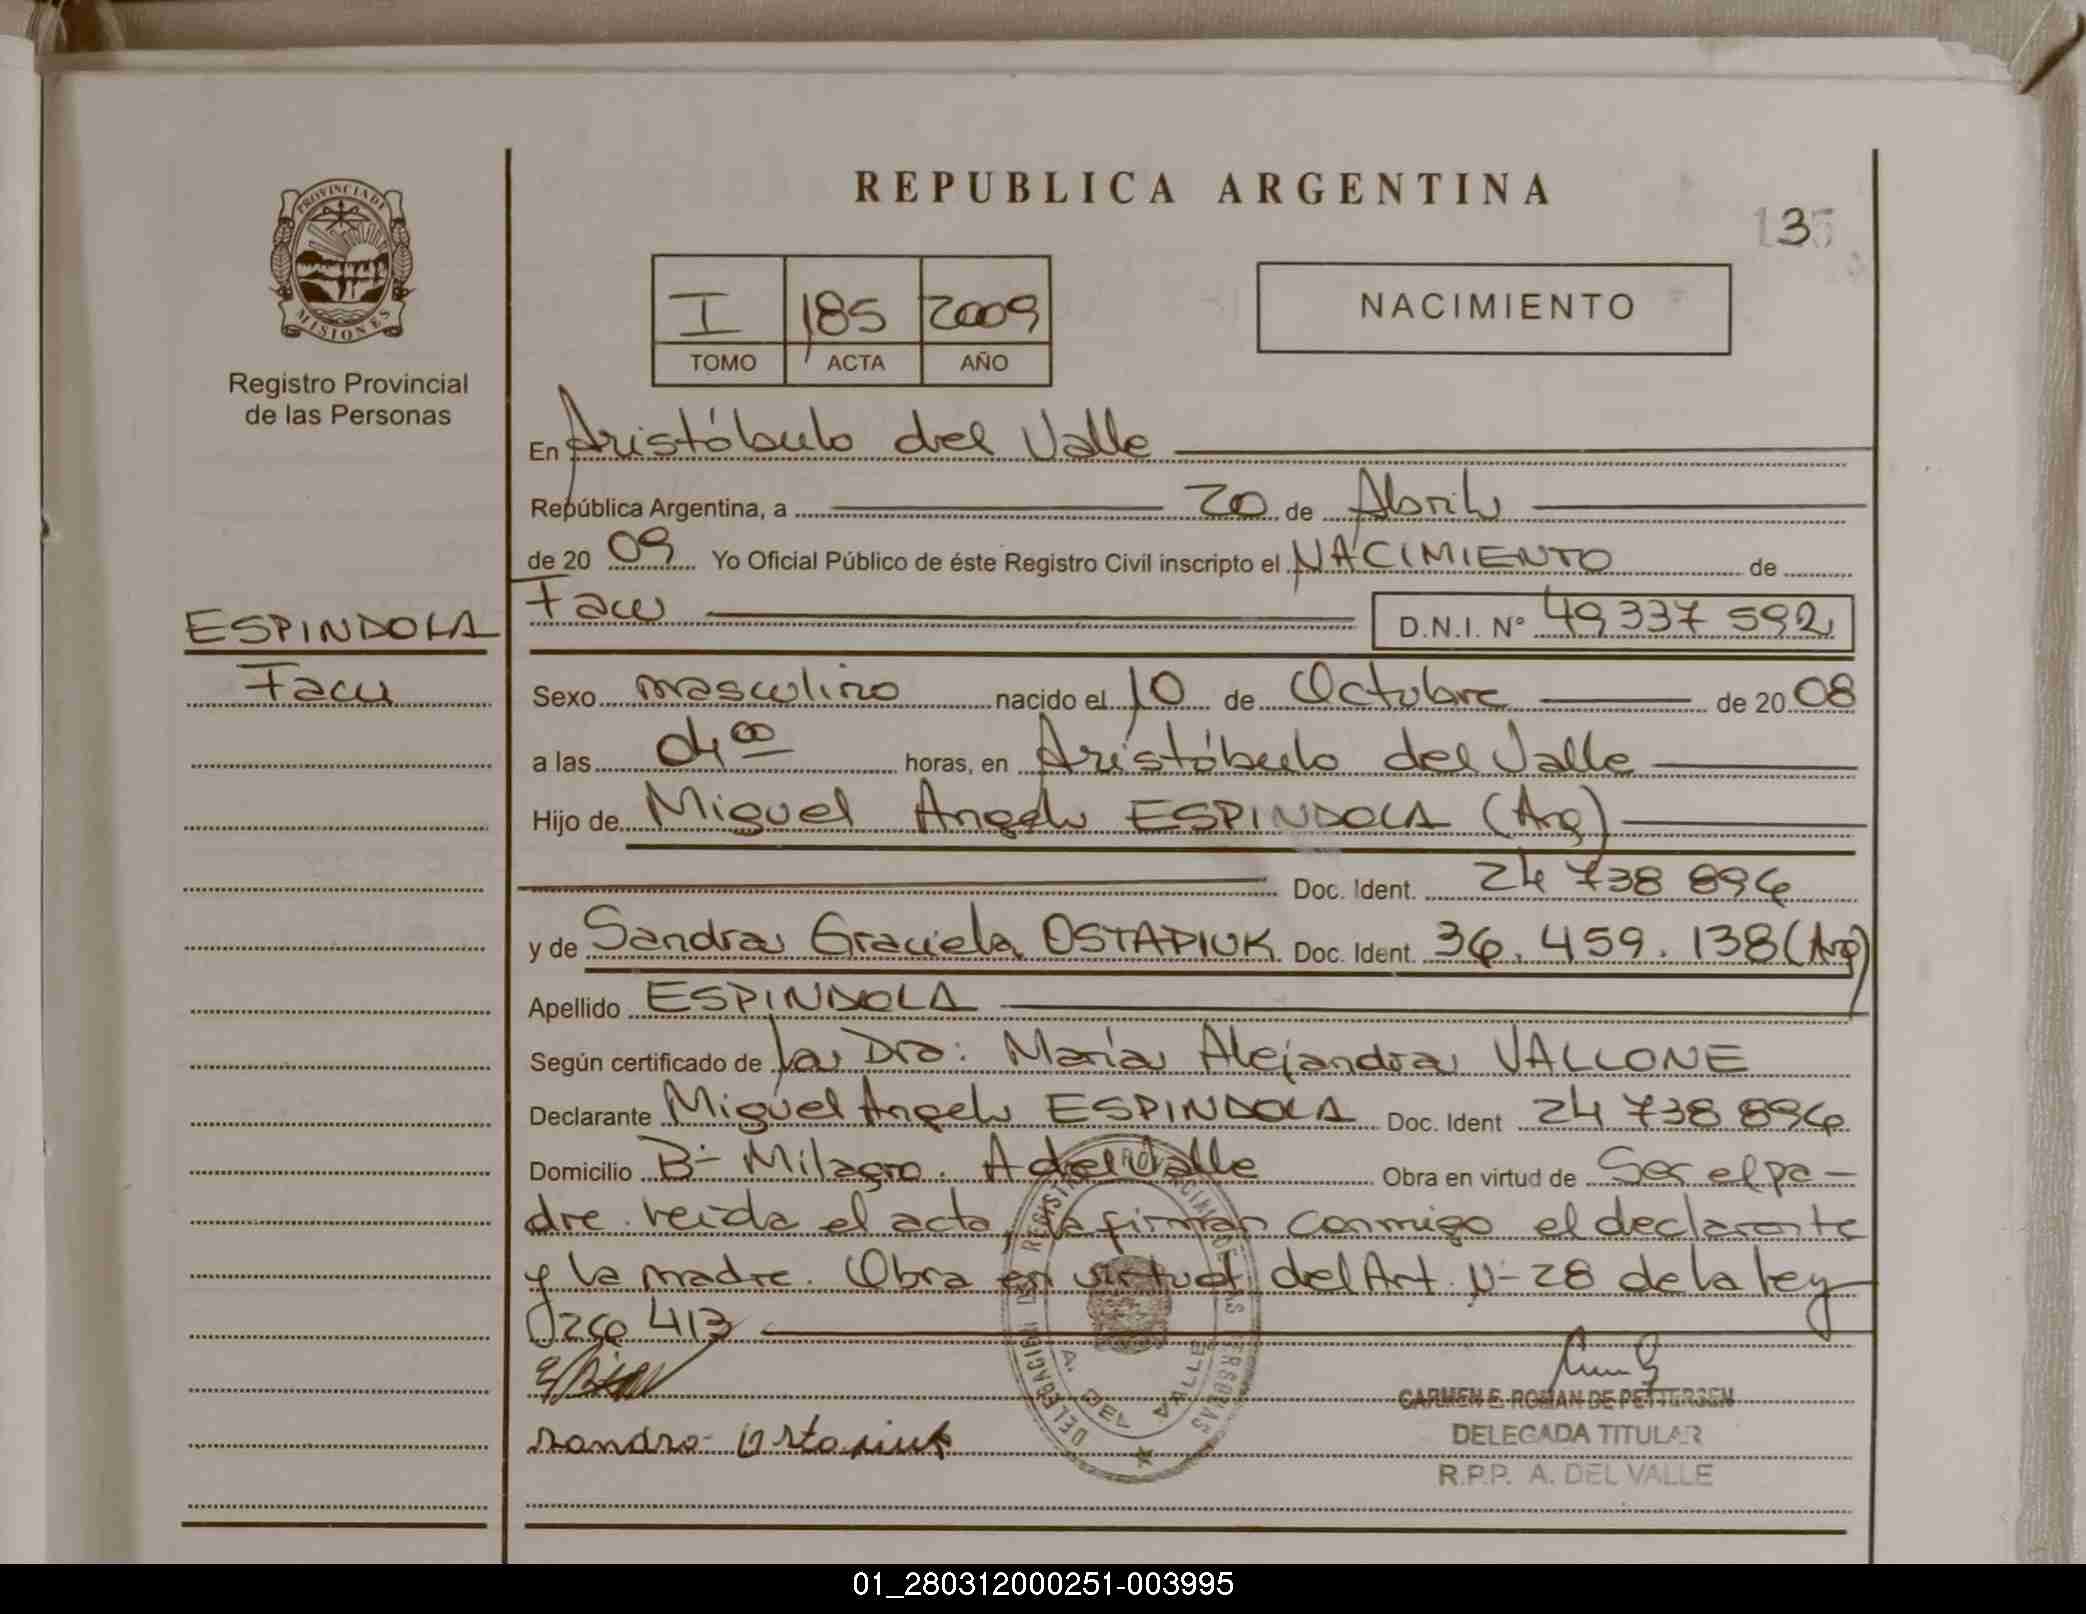 REPUBLICA ARGENTINA
135
PROVINCIA DE
MISIONES
Registro Provincial
de las Personas
I 185 2009
TOMO ACTA AÑO
NACIMIENTO
En Aristóbulo del Valle
República Argentina, a 20 de Abril
de 20 09 Yo Oficial Público de éste Registro Civil inscripto el NACIMIENTO de
Facu D.N.I. N° 49 337 592
ESPINDOLA
Facu
Sexo masculino nacido el 10 de Octubre de 20 08
a las 04 00 horas, en Aristóbulo del Valle
Hijo de Miguel Angel ESPINDOLA (Arg)
Doc. Ident. 24 738 896
y de Sandra Graciela OSTAPIUK Doc. Ident. 36.459.138 (Arg)
Apellido ESPINDOLA
Según certificado de la Dra: María Alejandra VALLONE
Declarante Miguel Angel ESPINDOLA Doc. Ident 24 738 896
Domicilio B- Milagro. A del Valle Obra en virtud de Ser el pa-
dre. leída el acta, la firman conmigo el declarante
y la madre. Obra en virtud del Art. N- 28 de la ley
413
Sandra Ostapiuk
DELEGACION REGISTRO PROVINCIAL DE LAS PERSONAS
A. DEL VALLE
CARMEN E. ROMAN DE PETTERSEN
DELEGADA TITULAR
R.P.P. A. DEL VALLE
01_280312000251-003995